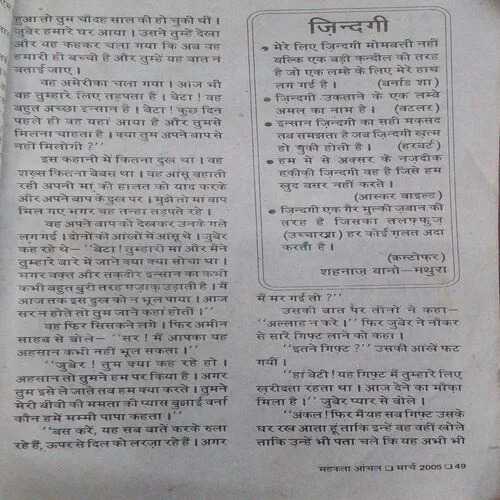 हुआ तो तुम चौदह साल की हो चुकी थीं।
जुबेर हमारे घर आया। उसने तुम्हें देखा
और यह कहकर चला गया कि अब वह
हमारी ही बच्ची है और तुम्हें यह बात न
बताई जाए।
वह अमेरीका चला गया। आज भी
वह तुम्हारे लिए तड़पता हैं। बेटा! वह
बहुत अच्छा इन्सान है। बेटा! कुछ दिन
पहले ही वह यहां आया है और तुमसे
मिलना चाहता है। क्या तुम अपने बाप से
नहीं मिलोगी?''
इस कहानी में कितना दुख था। वह
शख्स कितना बेबस था। वह आंसू बहाती
रही अपनी मां की हालत को याद करके
और अपने बाप के दुख पर। मुझे तो मां बाप
मिल गए मगर वह तन्हा तड़पते रहे।
वह अपने बाप को देखकर उनके गले
लग गई। दोनों की आंखों में आंसू थे। जुबेर
कह रहे थे— ''बेटा! तुम्हारी मां और मैंने
तुम्हारे बारे में जाने क्या क्या सोचा था।
मगर वक्त और तकदीर इन्सान का कभी
कभी बहुत बुरी तरह मजाक उड़ाती है। मैं
आज तक इस दुख को न भूल पाया। आज
सर न होते तो तुम जाने कहां होतीं।''
वह फिर सिसकने लगे। फिर अमीन
साहब से बोले— ''सर! मैं आपका यह
अहसान कभी नहीं भूल सकता।''
''जुबेर! तुम क्या कह रहे हो।
अहसान तो तुमने हम पर किया है। अगर
तुम इसे ले जाते तब हम क्या करते। तुमने
मेरी बीवी की ममता की प्यास बुझाई वर्ना
कौन हमें मम्मी पापा कहता।''
''बस करें, यह सब बातें करके रुला
रहे हैं, ऊपर से दिल को लरज़ा रहे हैं। अगर
ज़िन्दगी
• मेरे लिए ज़िन्दगी मोमबत्ती नहीं
बल्कि एक बड़ी कन्दील की तरह
है जो एक लम्हे के लिए मेरे हाथ
लग गई है। (बर्नाड शा)
• ज़िन्दगी उकताने के एक लम्बे
अमल का नाम है। (बटलर)
• इन्सान ज़िन्दगी का सही मकसद
तब समझता है जब ज़िन्दगी खत्म
हो चुकी होती है। (हरबर्ट)
• हम में से अक्सर के नजदीक
हकीकी ज़िन्दगी वह है जिसे हम
खुद बसर नहीं करते।
(आस्कर वाइल्ड)
• ज़िन्दगी एक गैर मुल्की ज़बान की
तरह है जिसका तलफ्फुज़
(उच्चारण) हर कोई ग़लत अदा
करता है।
(कस्टोफर)
शहनाज़ बानो—मथुरा
मैं मर गई तो?''
उसकी बात पर तीनों ने कहा—
''अल्लाह न करे।'' फिर जुबेर ने नौकर
से सारे गिफ़्ट लाने को कहा।
''इतने गिफ़्ट?'' उसकी आंखें फट
गयीं।
''हां बेटी! यह गिफ़्ट मैं तुम्हारे लिए
खरीदता रहता था। आज देने का मौका
मिला है।'' जुबेर प्यार से बोले।
''अंकल! फिर मैं यह सब गिफ़्ट उसके
घर रख आता हूं ताकि इन्हें वह वहीं खोले
ताकि उन्हें भी पता चले कि यह अभी भी
महकता आंचल □ मार्च 2005 □ 49